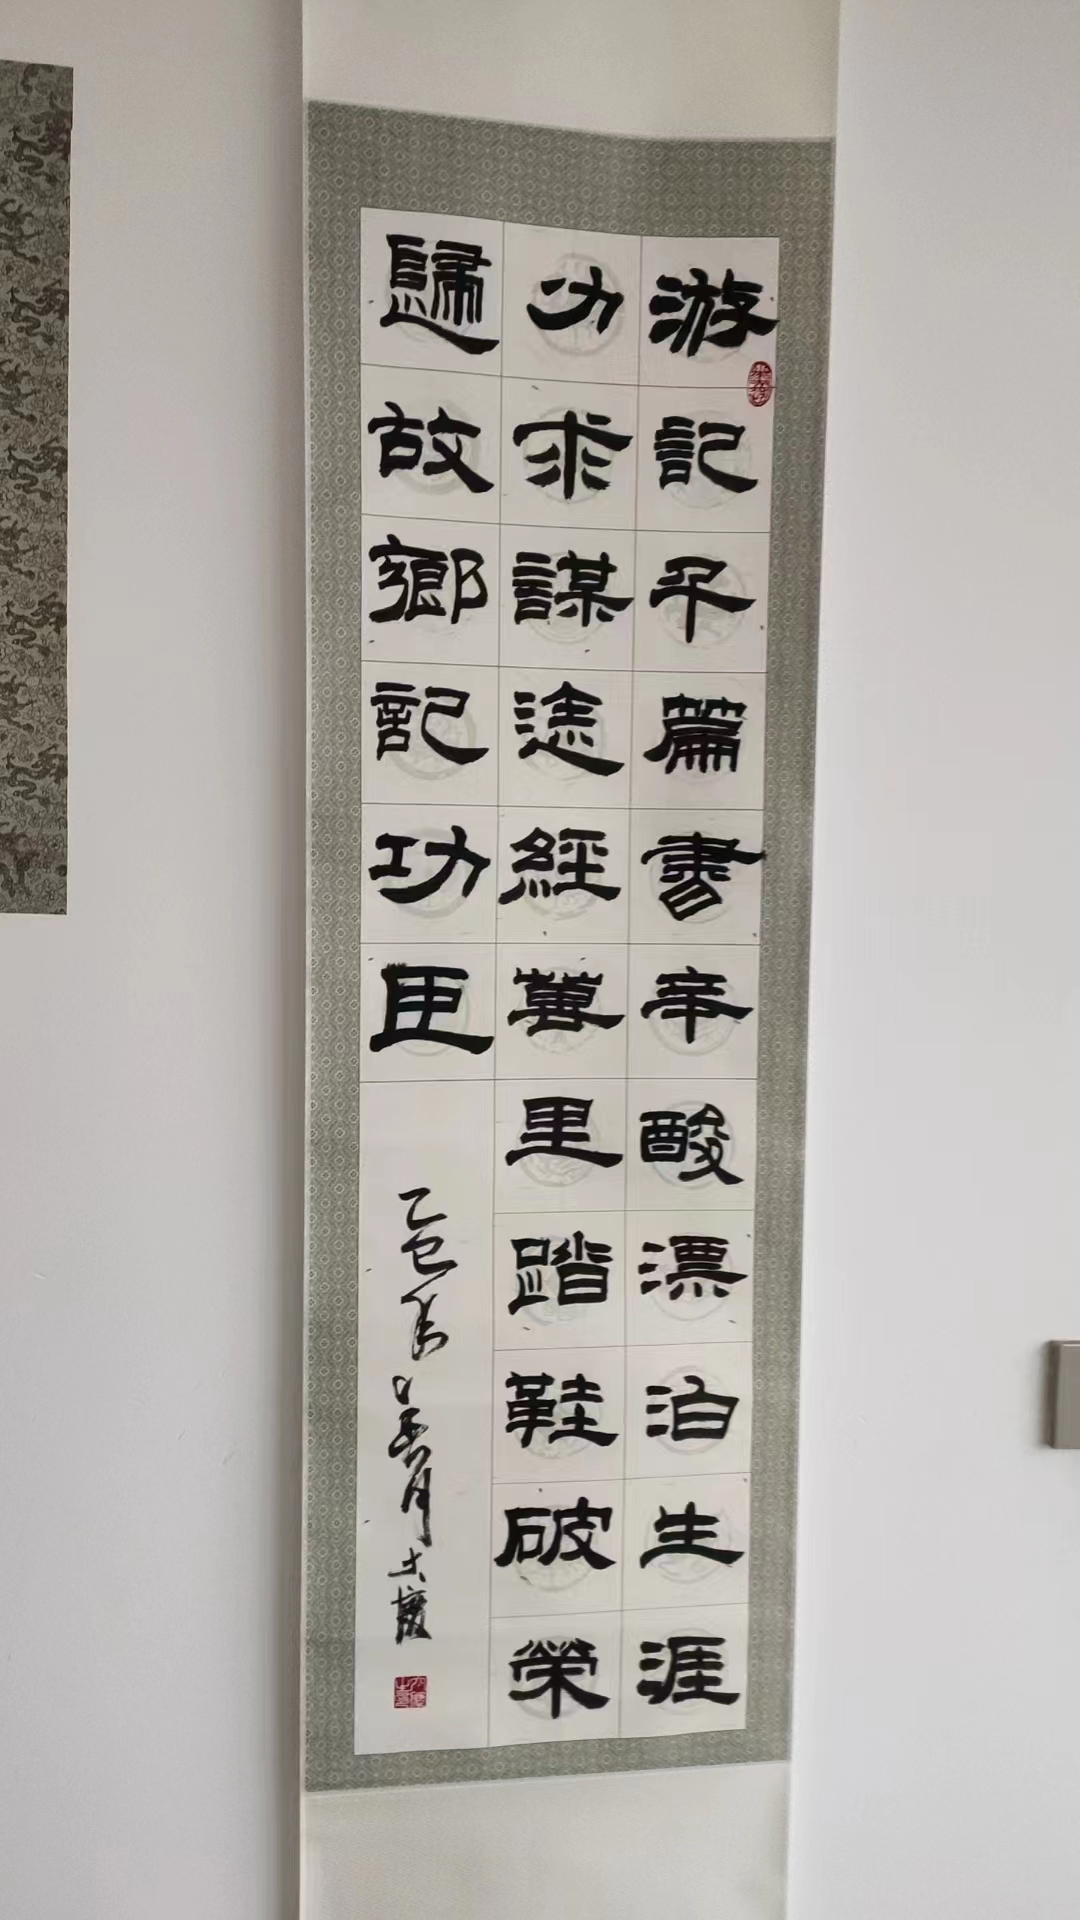 游記千篇書辛酸漂泊生涯
为求謀途經萬里踏鞋破榮
歸故鄉記功臣
乙巳年
月